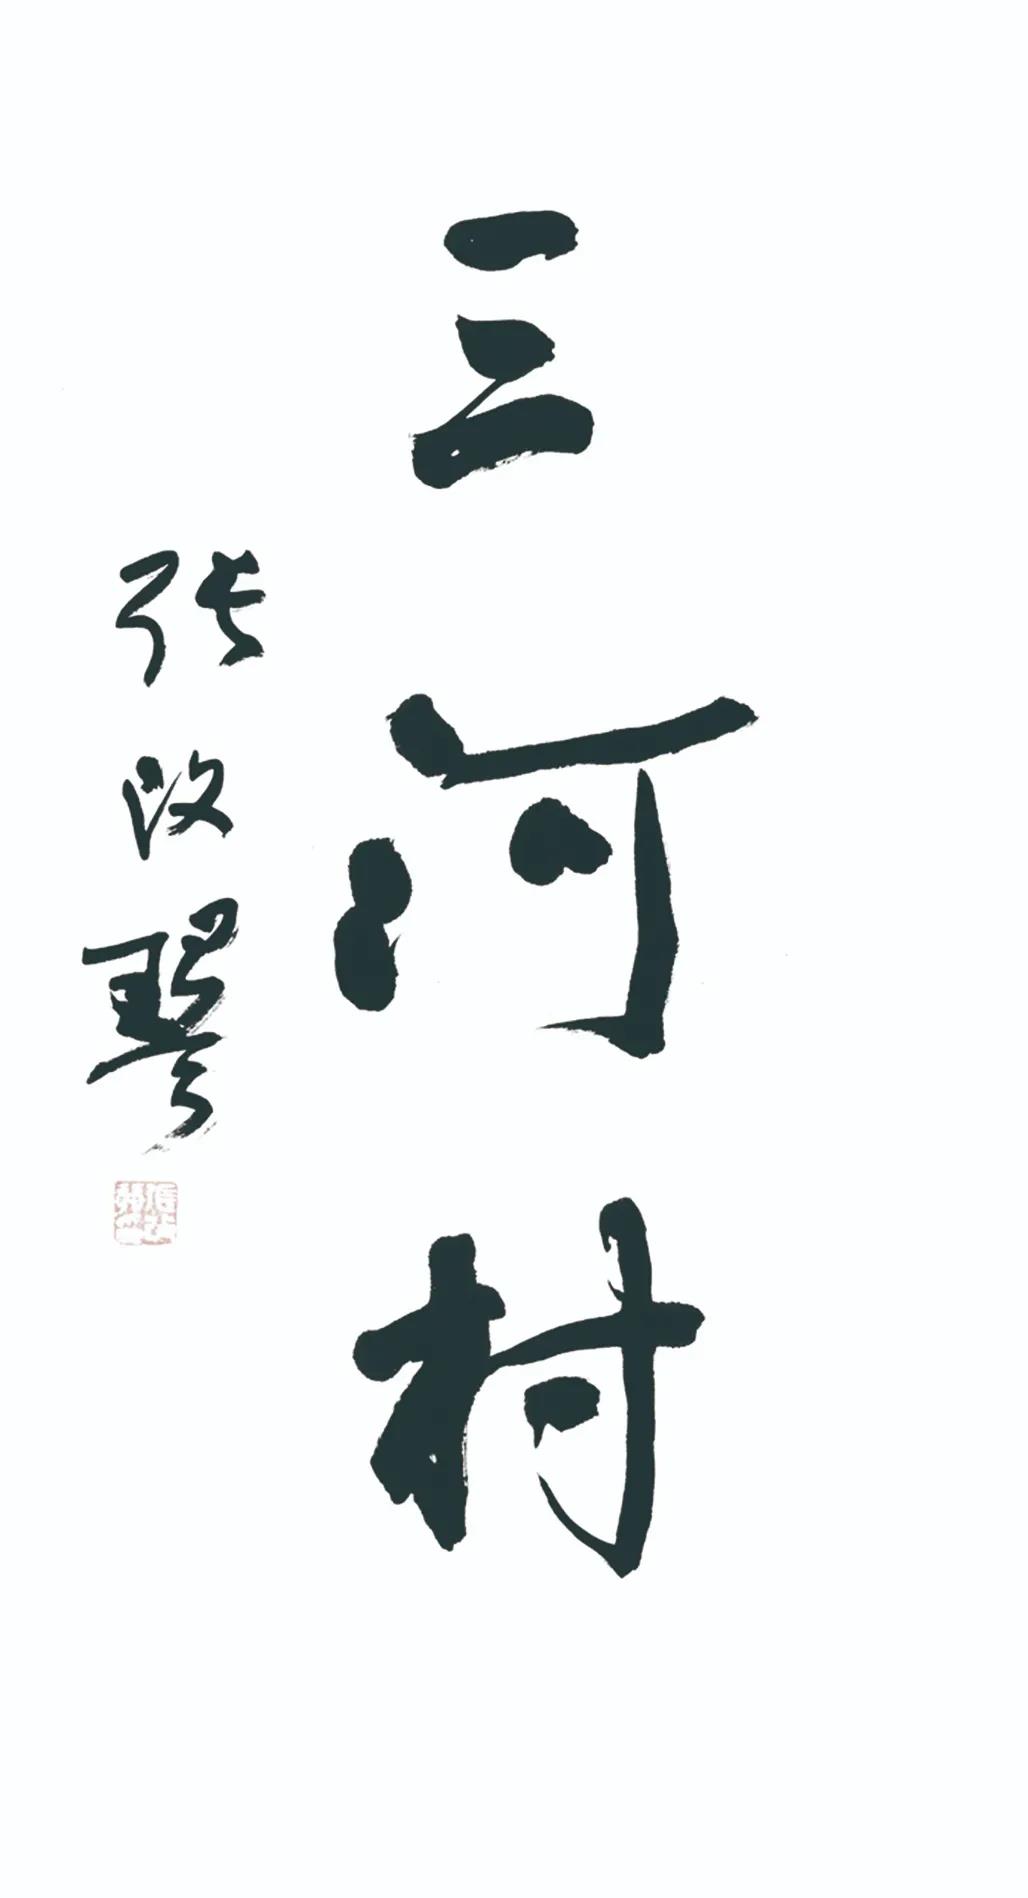 三河村
张改琴